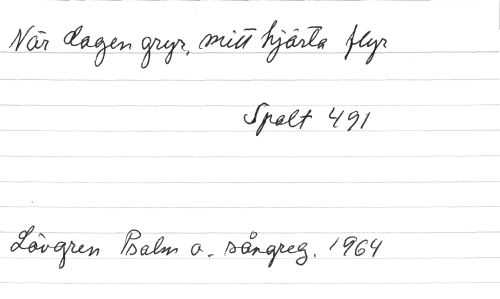 När dagen gryr, mitt hjärta flyr
Spalt 491
Lövgren Psalm o. sångreg. 1964